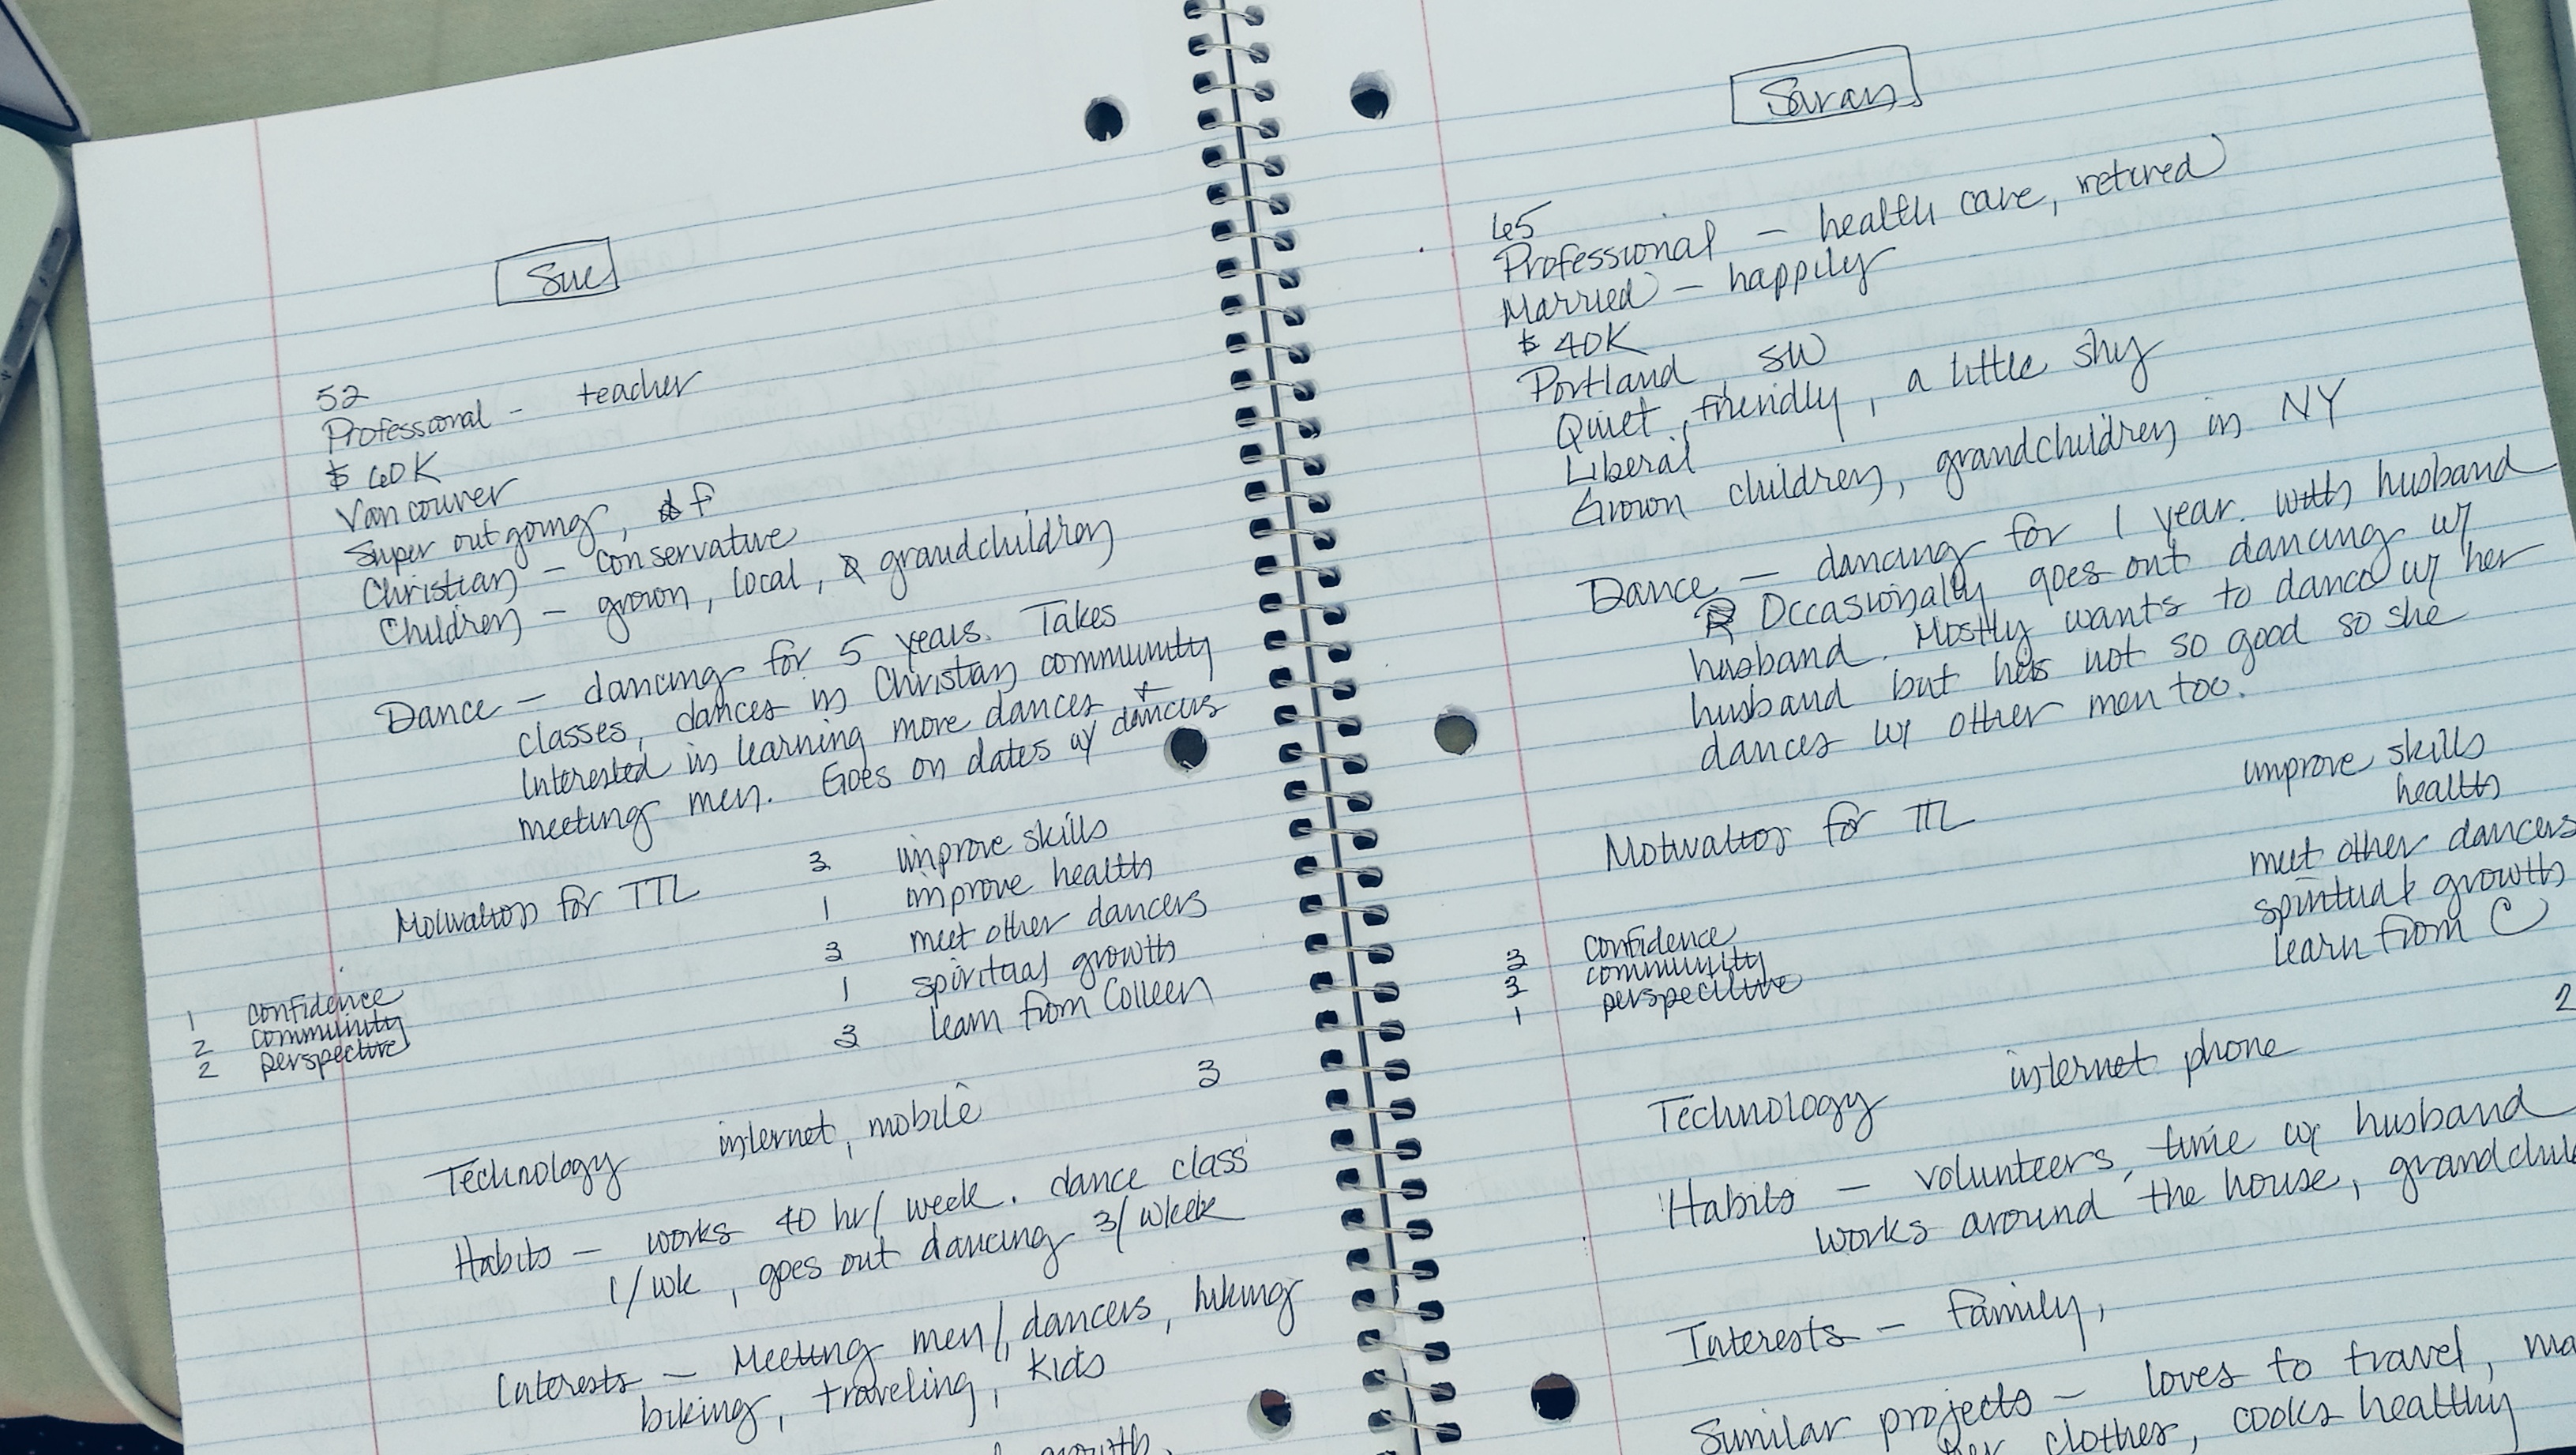 Sue
52
Professional - teacher
$ 60K
Vancouver
Super outgoing, f
Christian - conservative
Children - grown, local, grandchildren
Dance - dancing for 5 years. Takes
classes, dances in Christian community
Interested in learning more dances +
meeting men. Goes on dates w/ dancers
Motivation for TTL
3 improve skills
1 improve health
3 meet other dancers
1 spiritual growth
3 learn from Colleen
1 confidence
2 community
2 perspective
3
Technology internet, mobile
Habits - works 40 hr/week. dance class
1/wk, goes out dancing 3/week
Interests - Meeting men/, dancers, hiking
biking, traveling, kids
growth,
Sarah
65
Professional - health care, retired
Married - happily
$ 40K
Portland SW
Quiet, friendly, a little shy
Liberal
Grown children, grandchildren in NY
Dance - dancing for 1 year. with husband
Occasionally goes out dancing w/
husband. Mostly wants to dance w/ her
husband but he's not so good so she
dances w/ other men too.
Motivation for TTL
improve skills
health
meet other dancers
spiritual growth
learn from C
3 confidence
3 community
1 perspective
2
Technology internet phone
Habits - volunteers, time w/ husband
works around the house,
Interests - Family,
Similar projects - loves to travel,
clothes, cooks healthy